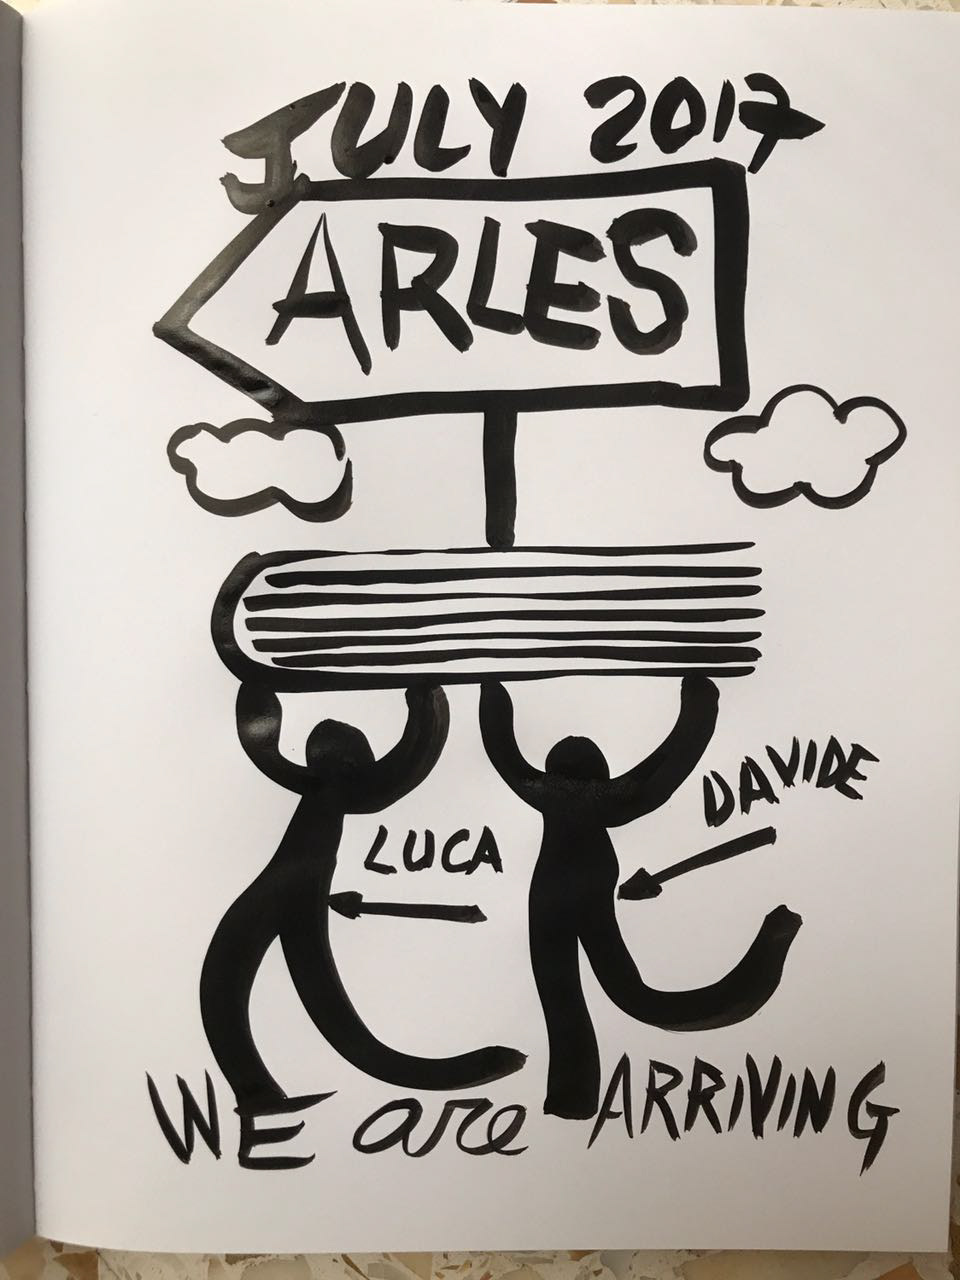 JULY 2017
ARLES
DAVIDE
LUCA
WE are ARRIVING